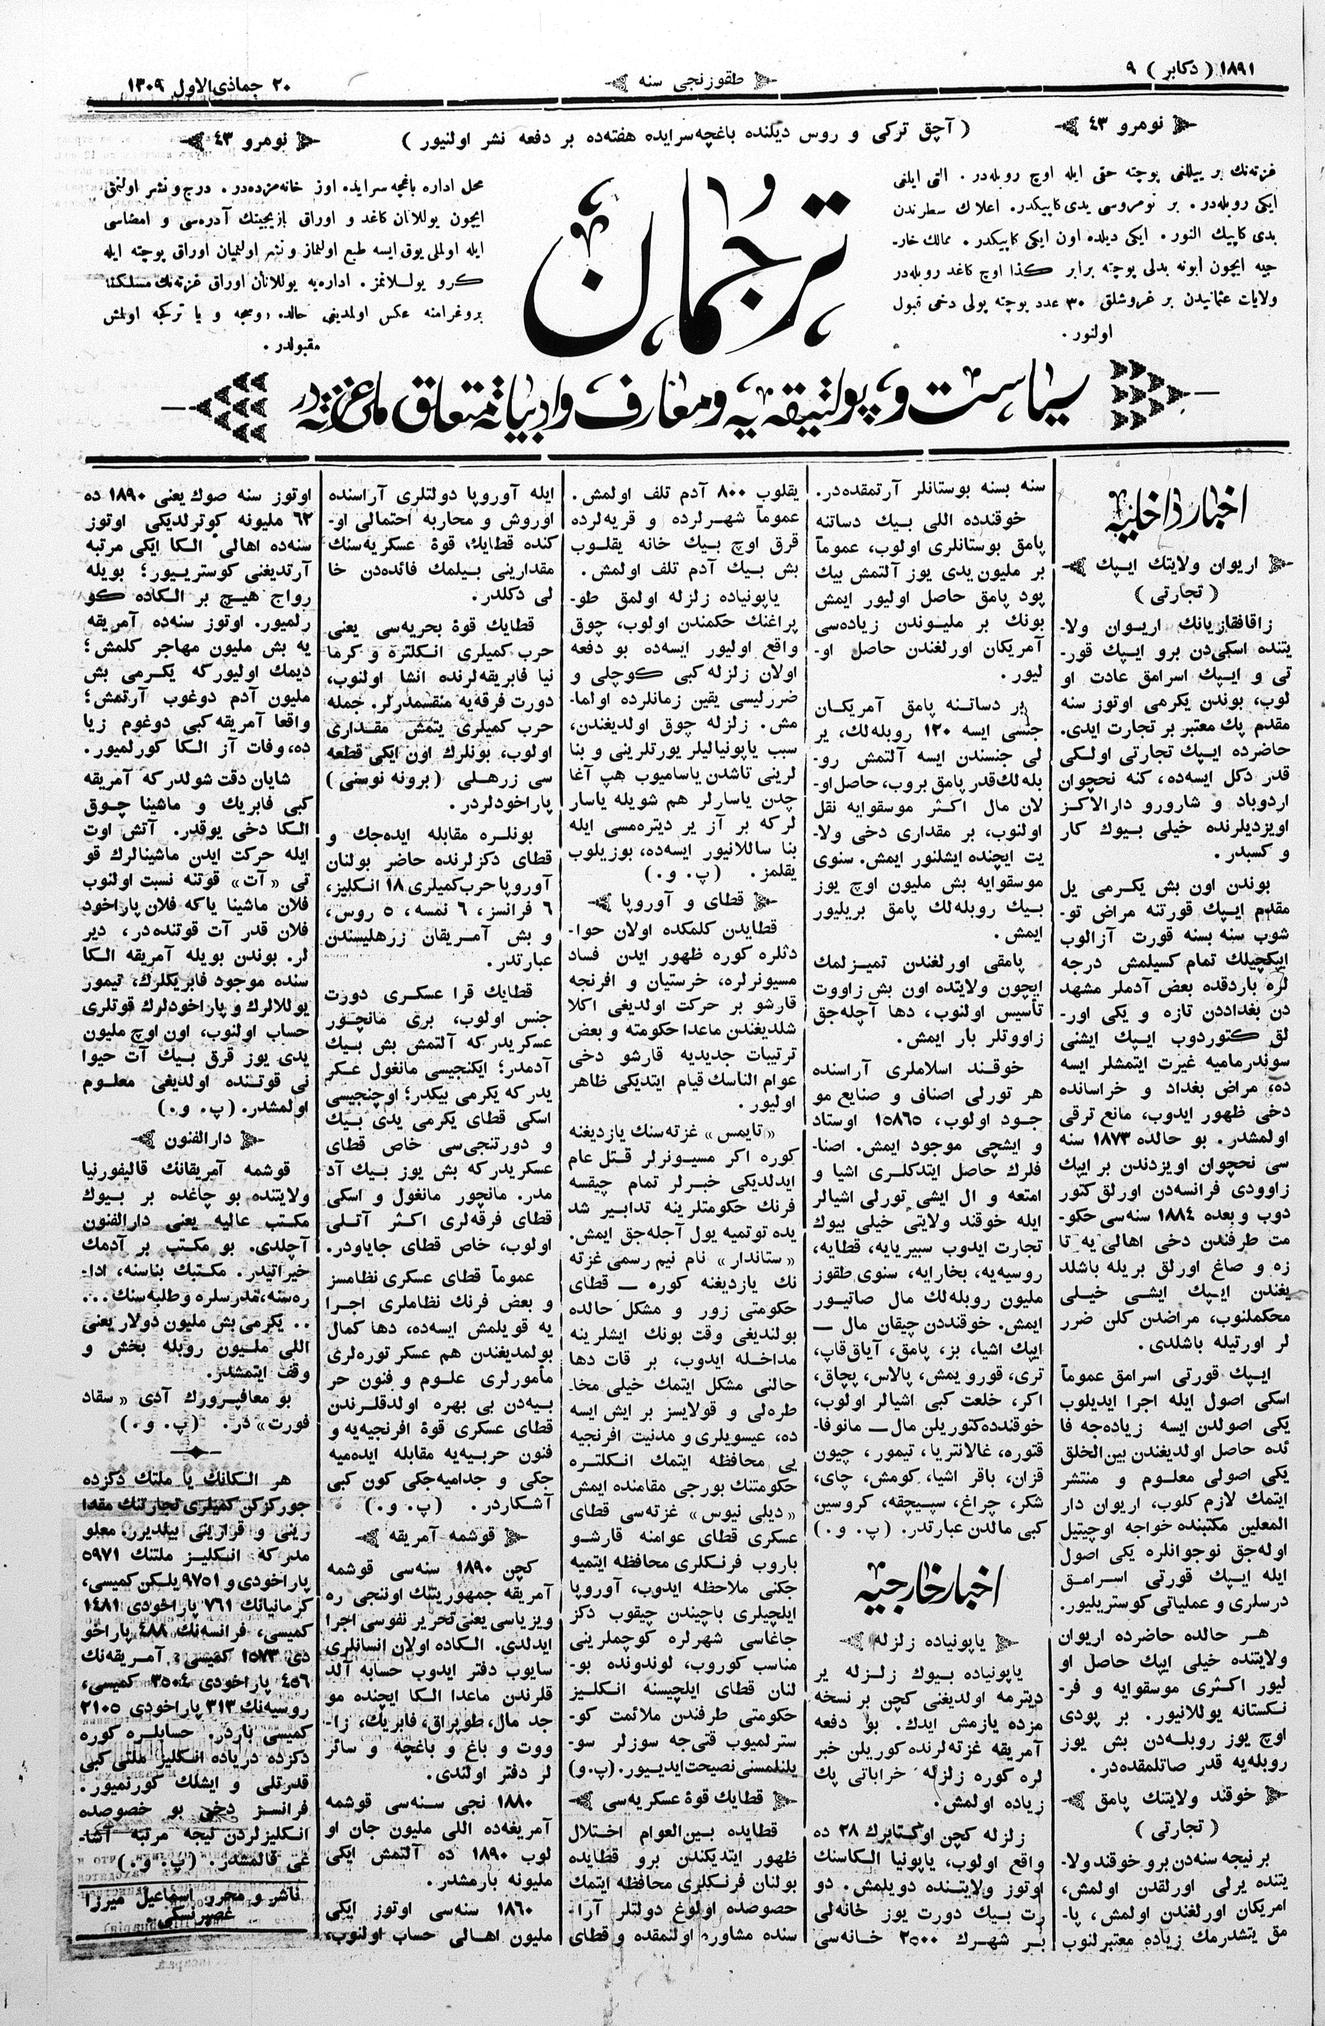 ١٨٩١ ( دكابر ) ٩
طقوزنجی سنه
٢٠ جمادی‌الاول ١٣٠٩
نومرو ٤٣
( آچق تركی و روس دیلنده باغچه‌سرایده هفته‌ده بر دفعه نشر اولنیور )
نومرو ٤٣
غزته‌نك بر ییللغی پوچته حقی ایله اوچ روبله‌در . التی ایلغی
ایكی روبله‌در . بر نومروسی یدی كاپیكدر . اعلانك سطرندن
یدی كاپیك النور . ایكی دیلده اون ایكی كاپیكدر . ممالك خار-
جیه ایچون آبونه بدلی پوچته برابر كذا اوچ كاغد روبله‌در
ولایات عثمانیدن بر غروشلق ٣٠ عدد پوچته پولی دخی قبول
اولنور .
ترجمان
محل اداره باغچه سرایده‌ اوز خانه‌مزده‌در . درج و نشر اولنمق
ایچون یوللانان كاغد و اوراق یازیجینك آدره‌سی و امضاسی
ایله اولملی یوق ایسه طبع اولنماز و نشر اولنمیان اوراق پوچته ایله
كرو یوللانمز . اداره‌یه یوللانان اوراق غزته‌نك مسلكنه
پروغرامنه عكس اولمدیغی حالده روسجه و یا تركجه اولمش
مقبولدر .
سیاست و پولتیقه‌یه و معارف و ادبیاته متعلق ملی غزته‌در
اخبار داخلیه
اریوان ولایتك ایپك
( تجارتی )
زاقافقازیانك اریوان ولا-
یتنده اسكی‌دن برو ایپك قور-
تی و ایپك اسرامق عادت او
لوب، بوندن یكرمی اوتوز سنه
مقدم پك معتبر بر تجارت ایدی.
حاضرده ایپك تجارتی اولكی
قدر دكل ایسه‌ده، كنه نحچوان
اردوباد و شارورو دارالاكز
اویزدیلرنده خیلی بیوك كار
و كسبدر .
بوندن اون بش یكرمی یل
مقدم ایپك قورتنه مراض تو-
شوب سنه بسنه قورت آزالوب
ایپكچیلك تمام كسیلمش درجه
لره باردقده بعض آدملر مشهد
دن بغداددن تازه و یكی اور-
لق كتوردوب ایپك ایشنی
سوندرمامیه غیرت ایتمشلر ایسه
ده، مراض بغداد و خراسانده
دخی ظهور ایدوب، مانع ترقی
اولمشدر. بو حالده ١٨٧٣ سنه
سی نحچوان اویزدندن بر ایپك
زاوودی فرانسه‌دن اورلق كتور
دوب و بعده ١٨٨٤ سنه‌سی حكو-
مت طرفندن دخی اهالی یه تا
زه و صاغ اورلق بریله باشلد
یغندن ایپك ایشی خیلی
محكملنوب، مراضدن كلن ضرر
لر اورتیله باشلدی.
ایپك قورتی اسرامق عموماً
اسكی اصول ایله اجرا ایدیلوب
یكی اصولدن ایسه زیاده‌جه فا
ئده حاصل اولدیغندن بین‌الخلق
یكی اصولی معلوم و منتشر
ایتمك لازم كلوب، اریوان دار
المعلین مكتبنده خواجه اوچیتیل
اوله‌جق نوجوانلره یكی اصول
ایله ایپك قورتی اسرامق
درسلری و عملیاتی كوستریلیور.
هر حالده حاضرده اریوان
ولایتنده خیلی ایپك حاصل او
لیور اكثری موسقوایه و فر-
نكستانه یوللانیور. بر پودی
اوچ یوز روبله‌دن بش یوز
روبله‌یه قدر صاتلمقده‌در.
خوقند ولایتنك پامق
( تجارتی )
بر نیچه سنه‌دن برو خوقند ولا-
یتنده یرلی اورلقدن اولمش،
امریكان اورلغندن اولمش، پا-
مق یتشدرمك زیاده معتبرلنوب
سنه بسنه بوستانلر آرتمقده‌در.
خوقنده اللی بیك دساتنه
پامق بوستانلری اولوب، عموماً
بر ملیون یدی یوز آلتمش بیك
پود پامق حاصل اولیور ایمش
بونك بر ملیوندن زیاده‌سی
آمریكان اورلغندن حاصل او-
لیور.
بر دساتنه پامق آمریكان
جنسی ایسه ١٣٠ روبله‌لك، یر
لی جنسندن ایسه آلتمش رو-
بله‌لك قدر پامق بروب، حاصل او-
لان مال اكثر موسقوایه نقل
اولنوب، بر مقداری دخی ولا-
یت ایچنده ایشلنور ایمش. سنوی
موسقوایه بش ملیون اوچ یوز
بیك روبله‌لك پامق بریلیور
ایمش.
پامقی اورلغندن تمیزلمك
ایچون ولایتده اون بش زاووت
تأسیس اولنوب، دها آچله‌جق
زاووتلر بار ایمش.
خوقند اسلاملری آراسنده
هر تورلی اصناف و صنایع مو
جود اولوب، ١٥٨٦٥ اوستاد
و ایشچی موجود ایمش. اصنا-
فلرك حاصل ایتدكلری اشیا و
امتعه و ال ایشی تورلی اشیالر
ایله خوقند ولایتی خیلی بیوك
تجارت ایدوب سیبریایه، قطایه،
روسیه‌یه، بخارایه، سنوی طقوز
ملیون روبله‌لك مال صاتیور
ایمش. خوقنددن چیقان مال —
ایپك اشیا، بز، پامق، آیاق‌قاپ،
تری، قورو یمش، پالاس، پچاق،
اكر، خلعت كبی اشیالر اولوب،
خوقنده كتوریلن مال — مانوفا-
قتوره، غالانتریا، تیمور، چیون
قزان، باقر اشیا، كومش، چای،
شكر، چراغ، سپیچقه، كروسین
كبی مالدن عبارتدر. (پ . و.)
اخبار خارجیه
یاپونیاده زلزله
یاپونیاده بیوك زلزله یر
دیترمه اولدیغی كچن بر نسخه
مزده یازمش ایدك. بو دفعه
آمریقه غزته‌لرنده كوریلن خبر
لره كوره زلزله خراباتی پك
زیاده اولمش.
زلزله كچن اوكتابرك ٢٨ ده
واقع اولوب، یاپونیا الكاسنك
اوتوز ولایتنده دویلمش. دو
رت بیك دورت یوز خانه‌لی
بر شهرك ٢٥٠٠ خانه‌سی
یقلوب ٨٠٠ آدم تلف اولمش.
عموماً شهرلرده و قریه‌لرده
قرق اوچ بیك خانه یقلوب
بش بیك آدم تلف اولمش.
یاپونیاده زلزله اولمق طو-
پراغنك حكمندن اولوب، چوق
واقع اولیور ایسه‌ده بو دفعه
اولان زلزله كبی كوچلی و
ضررلیسی یقین زمانلرده اولما-
مش. زلزله چوق اولدیغندن،
سبب یاپونیالیلر یورتلرینی و بنا
لرینی تاشدن یاسامیوب هپ آغا
چدن یاسارلر هم شویله یاسار
لركه بر آز یر دیتره‌مسی ایله
بنا ساللانیور ایسه‌ده، بوزیلوب
یقلمز. (پ . و.)
قطای و آوروپا
قطایدن كلمكده اولان حوا-
دثلره كوره ظهور ایدن فساد
مسیونرلره، خرستیان و افرنجه
قارشو بر حركت اولدیغی اكلا
شلدیغندن ماعدا حكومته و بعض
ترتیبات جدیدیه قارشو دخی
عوام الناسك قیام ایتدیكی ظاهر
اولیور.
«تایمس» غزته‌سنك یازدیغنه
كوره اكر مسیونرلر قتل عام
ایدلدیكی خبرلر تمام چیقسه
فرنك حكومتلرینه تدابیر شد
یده توتمیه یول آچله‌جق ایمش.
«ستاندار» نام نیم رسمی غزته
نك یازدیغنه كوره — قطای
حكومتی زور و مشكل حالده
بولندیغی وقت بونك ایشلرینه
مداخله ایدوب، بر قات دها
حالنی مشكل ایتمك خیلی مخا-
طره‌لی و قولایسز بر ایش ایسه
ده، عیسویلری و مدنیت افرنجیه
یی محافظه ایتمك انكلتره
حكومتنك بورجی مقامنده ایمش
«دیلی نیوس» غزته‌سی قطای
عسكری قطای عوامنه قارشو
باروب فرنكلری محافظه ایتمیه
جكنی ملاحظه ایدوب، آوروپا
ایلچیلری باچیندن چیقوب دكز
جاغاسی شهرلره كوچملرینی
مناسب كوروب، لوندونده بو-
لنان قطای ایلچیسنه انكلیز
حكومتی طرفندن ملائمت كو-
سترلمیوب قتی‌جه سوزلر سو-
یلنلمسنی نصیحت ایدیور. (پ.و)
قطایك قوۀ عسكریه‌سی
قطایده بین‌العوام اختلال
ظهور ایتدیكندن برو قطایده
بولنان فرنكلری محافظه ایتمك
خصوصده اولوغ دولتلر آرا-
سنده مشاوره اولنمقده و قطای
ایله آوروپا دولتلری آراسنده
اوروش و محاربه احتمالی او-
كنده قطایك، قوۀ عسكریه‌سنك
مقدارینی بیلمك فائده‌دن خا
لی دكلدر.
قطایك قوۀ بحریه‌سی یعنی
حرب كمیلری انكلتره و كرما
نیا فابریقه‌لرنده انشا اولنوب،
دورت فرقه‌یه منقسمدرلر. جمله
حرب كمیلری یتمش مقداری
اولوب، بونلرك اون ایكی قطعه
سی زرهلی (برونه نوسنی)
پاراخودلردر.
بونلره مقابله ایده‌جك و
قطای دكزلرنده حاضر بولنان
آوروپا حرب كمیلری ١٨ انكلیز،
٦ فرانسز، ٦ نمسه، ٥ روس،
و بش آمریقان زرهلیسندن
عبارتدر.
قطایك قرا عسكری دورت
جنس اولوب، بری مانچور
عسكریدركه آلتمش بش بیك
آدمدر؛ ایكنجیسی مانغول عسكر
یدركه یكرمی بیكدر؛ اوچنجیسی
اسكی قطای یكرمی یدی بیك
و دورتنجی‌سی خاص قطای
عسكریدركه بش یوز بیك آد
مدر. مانچور مانغول و اسكی
قطای فرقه‌لری اكثر آتلی
اولوب، خاص قطای جایاودر.
عموماً قطای عسكری نظامسز
و بعض فرنك نظاملری اجرا
یه قویلمش ایسه‌ده، دها كمال
بولمدیغندن هم عسكر توره‌لری
مأمورلری علوم و فنون حر
بیه‌دن بی بهره اولدقلرندن
قطای عسكری قوۀ افرنجیه‌یه و
فنون حربیه‌یه مقابله ایده‌میه
جكی و جدامیه‌جكی كون كبی
آشكاردر. (پ . و.)
قوشمه آمریقه
كچن ١٨٩٠ سنه‌سی قوشمه
آمریقه جمهوریتنك اوننجی ره
ویزیاسی یعنی تحریر نفوسی اجرا
ایدلدی. الكاده اولان انسانلری
سایوب دفتر ایدوب حسابه آلد
قلرندن ماعدا الكا ایچنده مو
جد مال، طوپراق، فابریك، زا-
ووت و باغ و باغچه و سائر
لر دفتر اولندی.
١٨٨٠ نجی سنه‌سی قوشمه
آمریغه‌ده اللی ملیون جان او
لوب ١٨٩٠ ده آلتمش ایكی
ملیونه بارمشدر.
١٨٦٠ سنه‌سی اوتوز ایكی
ملیون اهالی حساب اولنوب،
اوتوز سنه صوك یعنی ١٨٩٠ ده
٦٢ ملیونه كوترلدیكی اوتوز
سنه‌ده اهالی الكا ایكی مرتبه
آرتدیغنی كوستریور؛ بویله
رواج هیچ بر الكاده كو
رلمیور. اوتوز سنه‌ده آمریقه
یه بش ملیون مهاجر كلمش؛
دیمك اولیوركه یكرمی بش
ملیون آدم دوغوب آرتمش؛
واقعا آمریقه كبی دوغوم زیا
ده، وفات آز الكا كورلمیور.
شایان دقت شولدركه آمریقه
كبی فابریك و ماشینا چوق
الكا دخی یوقدر. آتش اوت
ایله حركت ایدن ماشینالرك قو
تی «آت» قوتنه نسبت اولنوب
فلان ماشینا یاكه فلان پاراخود
فلان قدر آت قوتنده‌در، دیر
لر. بوندن بویله آمریقه الكا
سنده موجود فابریكلرك، تیمور
یوللالرك و پاراخودلرك قوتلری
حساب اولنوب، اون اوچ ملیون
یدی یوز قرق بیك آت حیوا
نی قوتنده اولدیغی معلوم
اولمشدر. (پ . و.)
دارالفنون
قوشمه آمریقانك قالیفورنیا
ولایتنده بو چاغده بر بیوك
مكتب عالیه یعنی دارالفنون
آچلدی. بو مكتب بر آدمك
خیراتیدر. مكتبك بناسنه، ادا-
ره‌سنه، مدرسلره و طلبه‌سنك...
.. یكرمی بش ملیون دولار یعنی
اللی ملیون روبله بخش و
وقف ایتمشلر.
بو معافپرورك آدی «سقاد
فورت» در. (پ . و.)
هر الكانك یا ملتك دكزده
جوركزكن كمیلری تجارتنك مقدا
رینی و قرارینی بیلدیرر. معلو
مدركه انكلیز ملتنك ٥٩٧١
پاراخودی و ٩٧٥١ یلكن كمیسی،
كرمانیانك ٧٦١ پاراخودی ١٤٨١
كمیسی، فرانسه‌نك ٤٨٨ پاراخو
دی ١٥٧٣ كمیسی، آمریقه‌نك
٤٥٦ پاراخودی ٣٥٠٤ كمیسی،
روسیه‌نك ٣١٣ پاراخودی ٢١٠٥
كمیسی باردر. حسابلره كوره
دكزده دریاده انكلیز ملتی كبی
قدرتلی و ایشلك كورنمیور.
فرانسز دخی بو خصوصده
انكلیزلردن نیجه مرتبه آشا-
غی قالمشدر. (پ . و.)
ناشر و محرر اسماعیل میرزا
غصپرنسكی